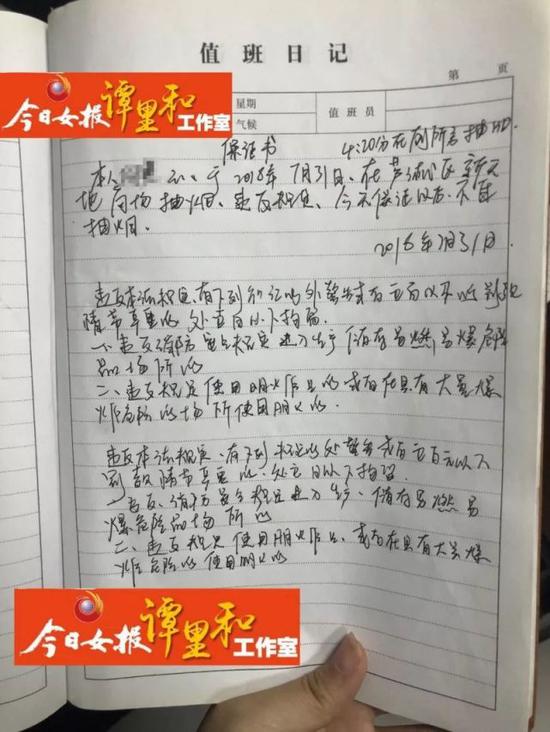 值班日记
第 页
今日女报 谭里和 工作室
星期
气候
值班员
保证书
4:20分在厕所后抽烟.
本人 于2018年7月31日、在芦淞区新天
地商场抽烟、违反规定、今天保证以后.不在
抽烟.
2018年7月31日.
违反本法规定,有下列行为以外警告或者五百以下
情节严重的 处五日以下拘留
一、违反消防安全规定进入生产 储存易燃易爆危险
品场所的
二、违反规定使用明火作业的或者在具有大量爆
炸危险的场所使用明火的.
违反本法规定、有下列 的处警告或者五百元以下
罚款情节严重的、处五日以下拘留
一违反、消防安全规定进入生产、储存易燃易
爆危险品场所的
二、违反规定使用明火作业、或者在具有大量爆
炸危险的使用明火的
今日女报 谭里和 工作室